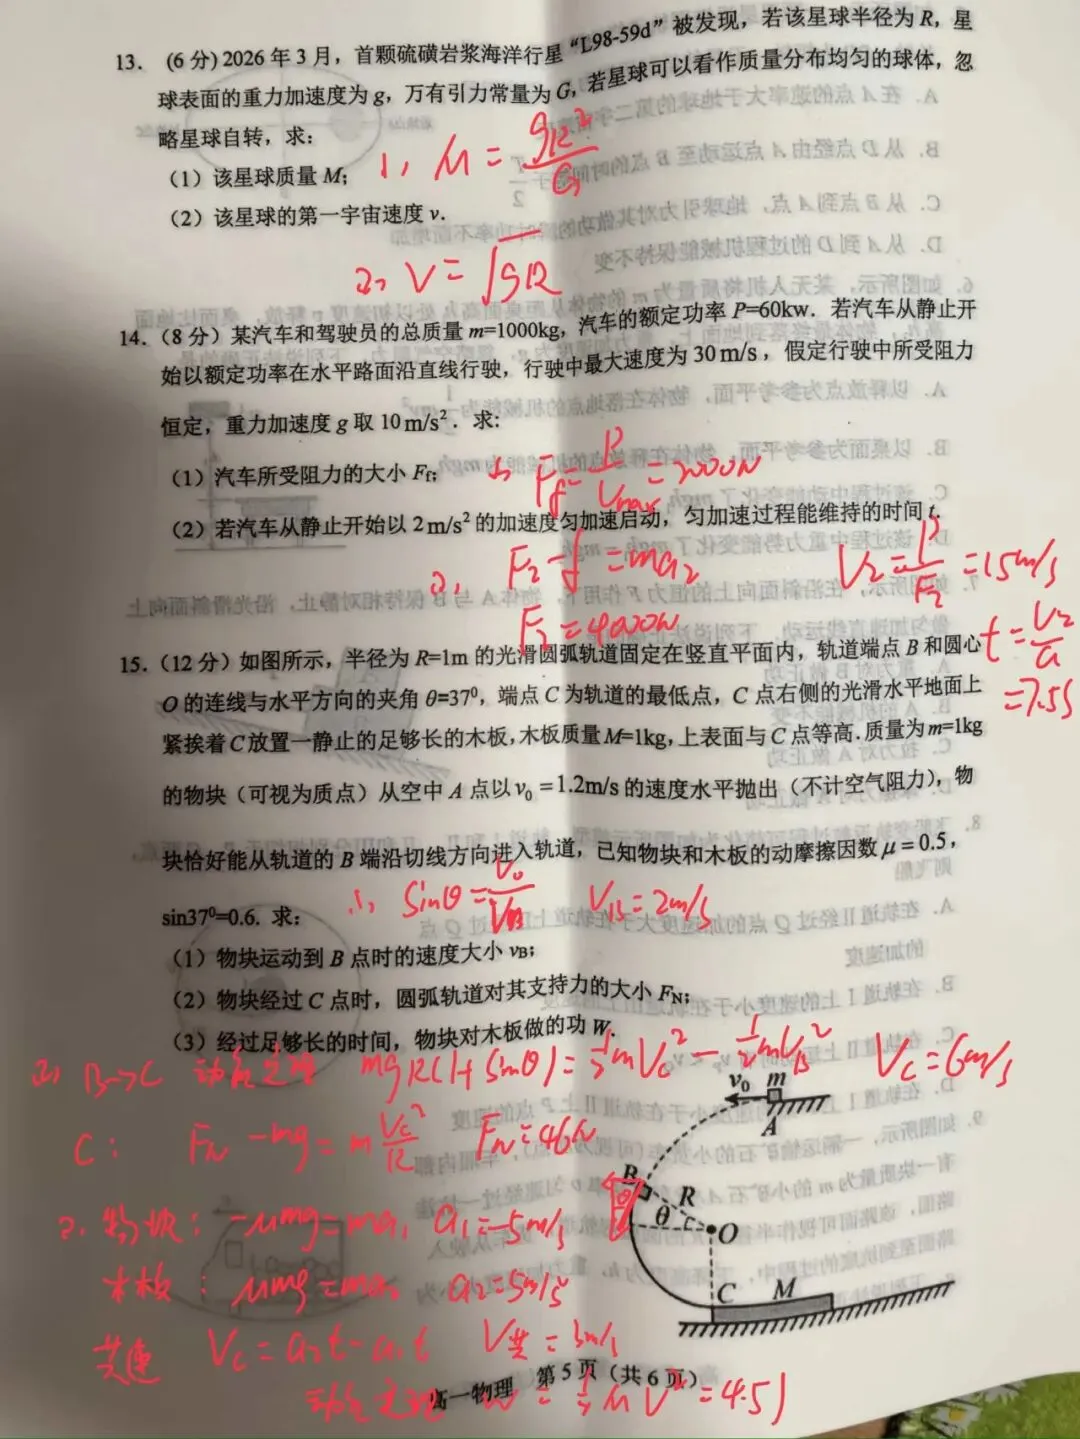 13. (6分) 2026年3月，首颗硫磺岩浆海洋行星“L98-59d”被发现，若该星球半径为R，星
球表面的重力加速度为g，万有引力常量为G，若星球可以看作质量分布均匀的球体，忽
略星球自转，求：
（1）该星球质量M；
1, M = gR²/G
（2）该星球的第一宇宙速度v.
2, V = √gR
14.（8分）某汽车和驾驶员的总质量m=1000kg，汽车的额定功率P=60kw．若汽车从静止开
始以额定功率在水平路面沿直线行驶，行驶中最大速度为30m/s，假定行驶中所受阻力
恒定，重力加速度g取10m/s²．求：
（1）汽车所受阻力的大小Ff；
1, Ff = P/Vmax = 2000N
（2）若汽车从静止开始以2m/s²的加速度匀加速启动，匀加速过程能维持的时间t.
2, F₂-f = ma₂
V₂ = P/F₂ = 15m/s
F₂ = 4000N
t = V₂/a
= 7.5s
15.（12分）如图所示，半径为R=1m的光滑圆弧轨道固定在竖直平面内，轨道端点B和圆心
O的连线与水平方向的夹角θ=37⁰，端点C为轨道的最低点，C点右侧的光滑水平地面上
紧挨着C放置一静止的足够长的木板，木板质量M=1kg，上表面与C点等高．质量为m=1kg
的物块（可视为质点）从空中A点以v₀=1.2m/s的速度水平抛出（不计空气阻力），物
块恰好能从轨道的B端沿切线方向进入轨道，已知物块和木板的动摩擦因数μ=0.5，
sin37⁰=0.6. 求：
1, Sinθ = V₀/VB VB = 2m/s
（1）物块运动到B点时的速度大小vB；
（2）物块经过C点时，圆弧轨道对其支持力的大小FN；
（3）经过足够长的时间，物块对木板做的功W.
2, B→C 动能定理 mgR(1+Sinθ) = ½mVc² - ½mVB² Vc = 6m/s
C: FN - mg = m Vc²/R FN = 46N
物块: -μmg = ma₁ a₁ = -5m/s
木板: μmg = ma₂ a₂ = 5m/s²
共速 V共 = 3m/s
动能定理 W = ½MV² = 4.5J
v₀ m
A
B
R
θ
O
C M
高一物理 第5页（共6页）